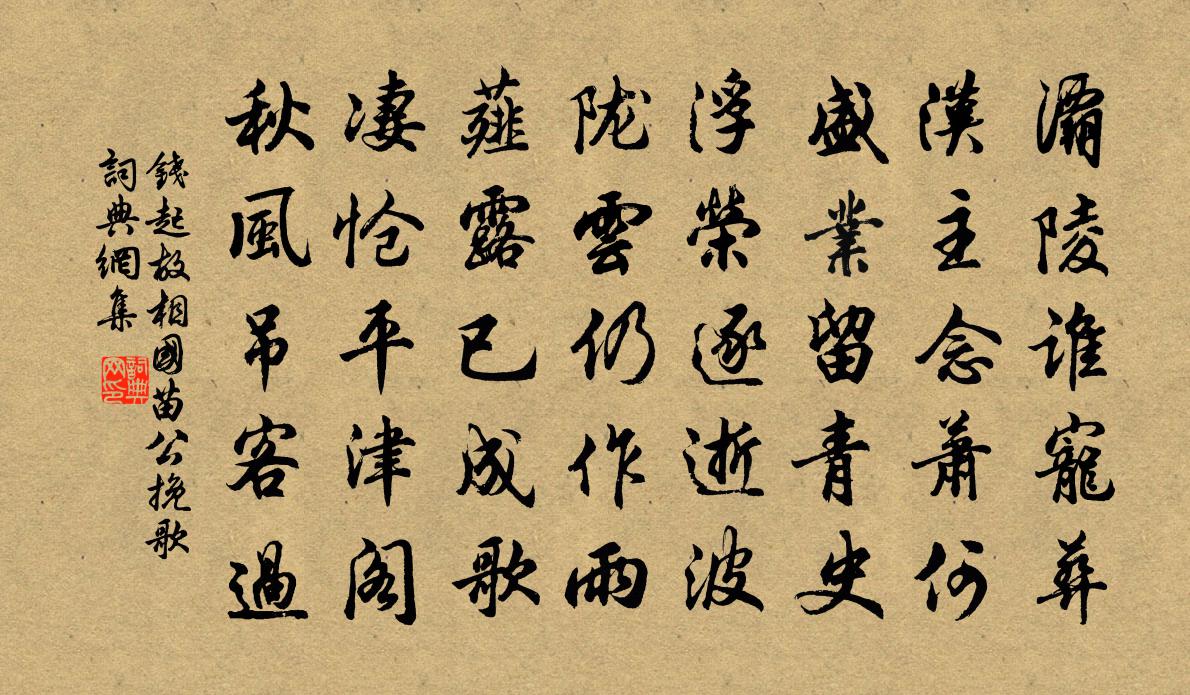 灞陵誰寵葬
漢主念蕭何
盛業留青史
浮榮逐逝波
陇雲仍作雨
薤露已成歌
凄怆平津阁
秋風吊客過
錢起故相國苗公挽歌
詞典網集
詞典網印